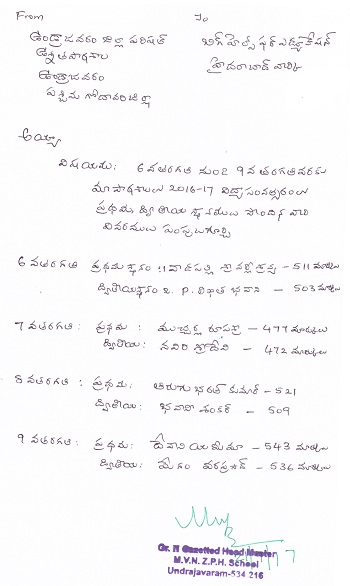 From
To
ఉండ్రాజవరం జిల్లా పరిషత్
ఉన్నతపాఠశాల
ఉండ్రాజవరం
పశ్చిమ గోదావరి జిల్లా
బిగ్ హెల్ప్ ఫర్ ఎడ్యుకేషన్
హైదరాబాద్ వారికి
అయ్యా
విషయము: 6 వతరగతి నుండి 9 వతరగతివరకు
మా పాఠశాలలు 2016-17 విద్యా సంవత్సరంలు
ప్రథమ, ద్వితీయ స్థానములు పొందిన వారి
వివరములు పంపుట గూర్చి
6 వతరగతి ప్రథమ స్థానం :1) - 511 మార్కులు
ద్వితీయస్థానం 2. P. లిఖిత భవాని - 503 మార్కులు
7 వతరగతి: ప్రథమ : ముచ్చర్ల రూపశ్రీ - 477 మార్కులు
ద్వితీయ: శ్రీదేవి - 472 మార్కులు
8 వతరగతి : ప్రథమ: భరత్ కుమార్ - 521
ద్వితీయ: భవానీ శంకర్ - 509
9 వతరగతి: ప్రథమ: - 543 మార్కులు
ద్వితీయ: - 536 మార్కులు
Gr. II Gazetted Head Master
M.V.N. Z.P.H. School
Undrajavaram-534 216